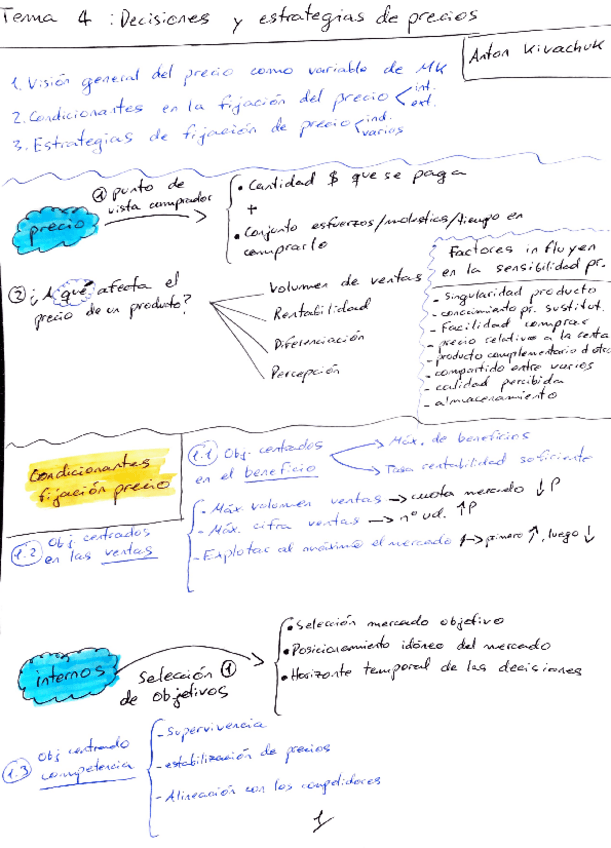 Tema 4 : Decisiones y estrategias de precios
Anton Kivachuk
1. Visión general del precio como variable de MK
2. Condicionantes en la fijación del precio < int. ext.
3. Estrategias de fijación de precio < ind. varios
precio
① punto de
vista comprador
• Cantidad $ que se paga
+
• Conjunto esfuerzos/molestias/tiempo en
comprarlo
② ¿A qué afecta el
precio de un producto?
Volumen de ventas
Rentabilidad
Diferenciación
Percepción
Factores influyen
en la sensibilidad pr.
- Singularidad producto
- conocimiento pr. sustitut.
- Facilidad comprar
- precio relativo a la renta
- producto complementario d otro
- compartido entre varios
- calidad percibida
- almacenamiento
Condicionantes
fijación precio
1.1 Obj. centrados
en el beneficio
Máx. de beneficios
Tasa rentabilidad suficiente
1.2 Obj. centrados
en las ventas
- Máx volumen ventas → cuota mercado ↓P
- Máx. cifra ventas → nº ud. ↑P
- Explotar al máximo el mercado → primero ↑, luego ↓
internos
selección ①
de objetivos
• Selección mercado objetivo
• Posicionamiento idóneo del mercado
• Horizonte temporal de las decisiones
1.3 Obj centrado
competencia
- Supervivencia
- estabilización de precios
- Alineación con los competidores
1